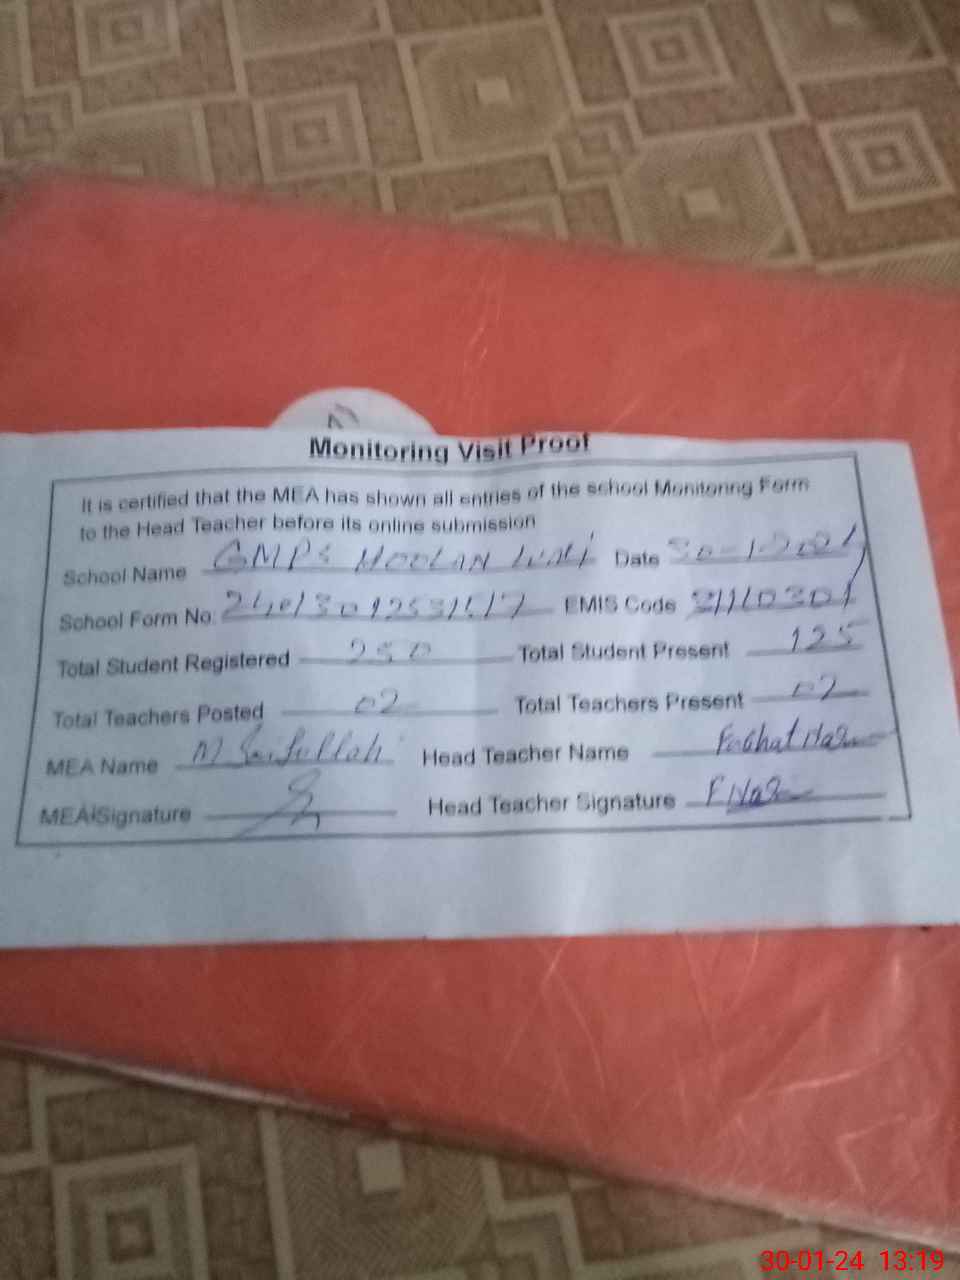 Monitoring Visit Proof
It is certified that the MEA has shown all entries of the school Monitoring Form
to the Head Teacher before its online submission
School Name GMPS HOOLAN WALI Date 30-1-2024
School Form No. EMIS Code
Total Student Registered 250 Total Student Present 125
Total Teachers Posted 02 Total Teachers Present 02
MEA Name M Saifullah Head Teacher Name
MEA Signature Head Teacher Signature
30-01-24 13:19